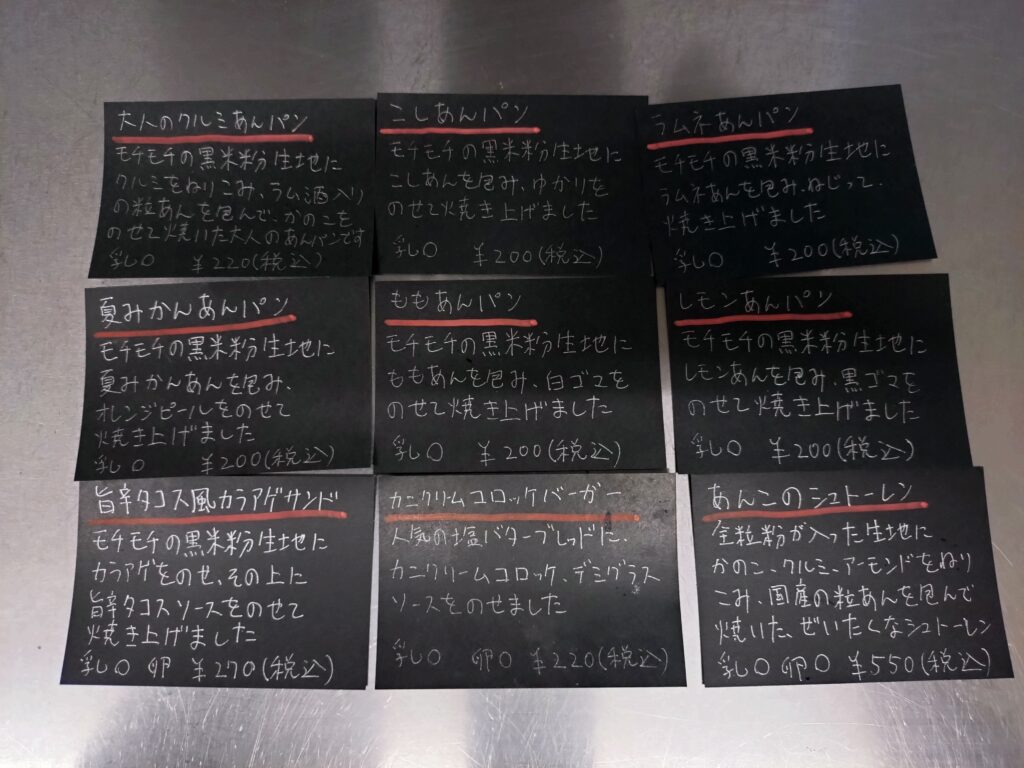 大人のクルミあんパン
モチモチの黒米粉生地に
クルミをねりこみ、ラム酒入り
の粒あんを包んで、かのこを
のせて焼いた大人のあんパンです
乳〇 ¥220(税込)
こしあんパン
モチモチの黒米粉生地に
こしあんを包み、ゆかりを
のせて焼き上げました
乳〇 ¥200(税込)
ラムネあんパン
モチモチの黒米粉生地に
ラムネあんを包み、ねじって、
焼き上げました
乳〇 ¥200(税込)
夏みかんあんパン
モチモチの黒米粉生地に
夏みかんあんを包み、
オレンジピールをのせて
焼き上げました
乳〇 ¥200(税込)
ももあんパン
モチモチの黒米粉生地に
ももあんを包み、白ゴマを
のせて焼き上げました
乳〇 ¥200(税込)
レモンあんパン
モチモチの黒米粉生地に
レモンあんを包み、黒ゴマを
のせて焼き上げました
乳〇 ¥200(税込)
旨辛タコス風カラアゲサンド
モチモチの黒米粉生地に
カラアゲをのせ、その上に
旨辛タコスソースをのせて
焼き上げました
乳〇 卵 ¥270(税込)
カニクリームコロッケバーガー
人気の塩バターブレッドに、
カニクリームコロッケ、デミグラス
ソースをのせました
乳〇 卵〇 ¥220(税込)
あんこのシュトーレン
全粒粉が入った生地に
かのこ、クルミ、アーモンドをねり
こみ、国産の粒あんを包んで
焼いた、ぜいたくなシュトーレン
乳〇 卵〇 ¥550(税込)